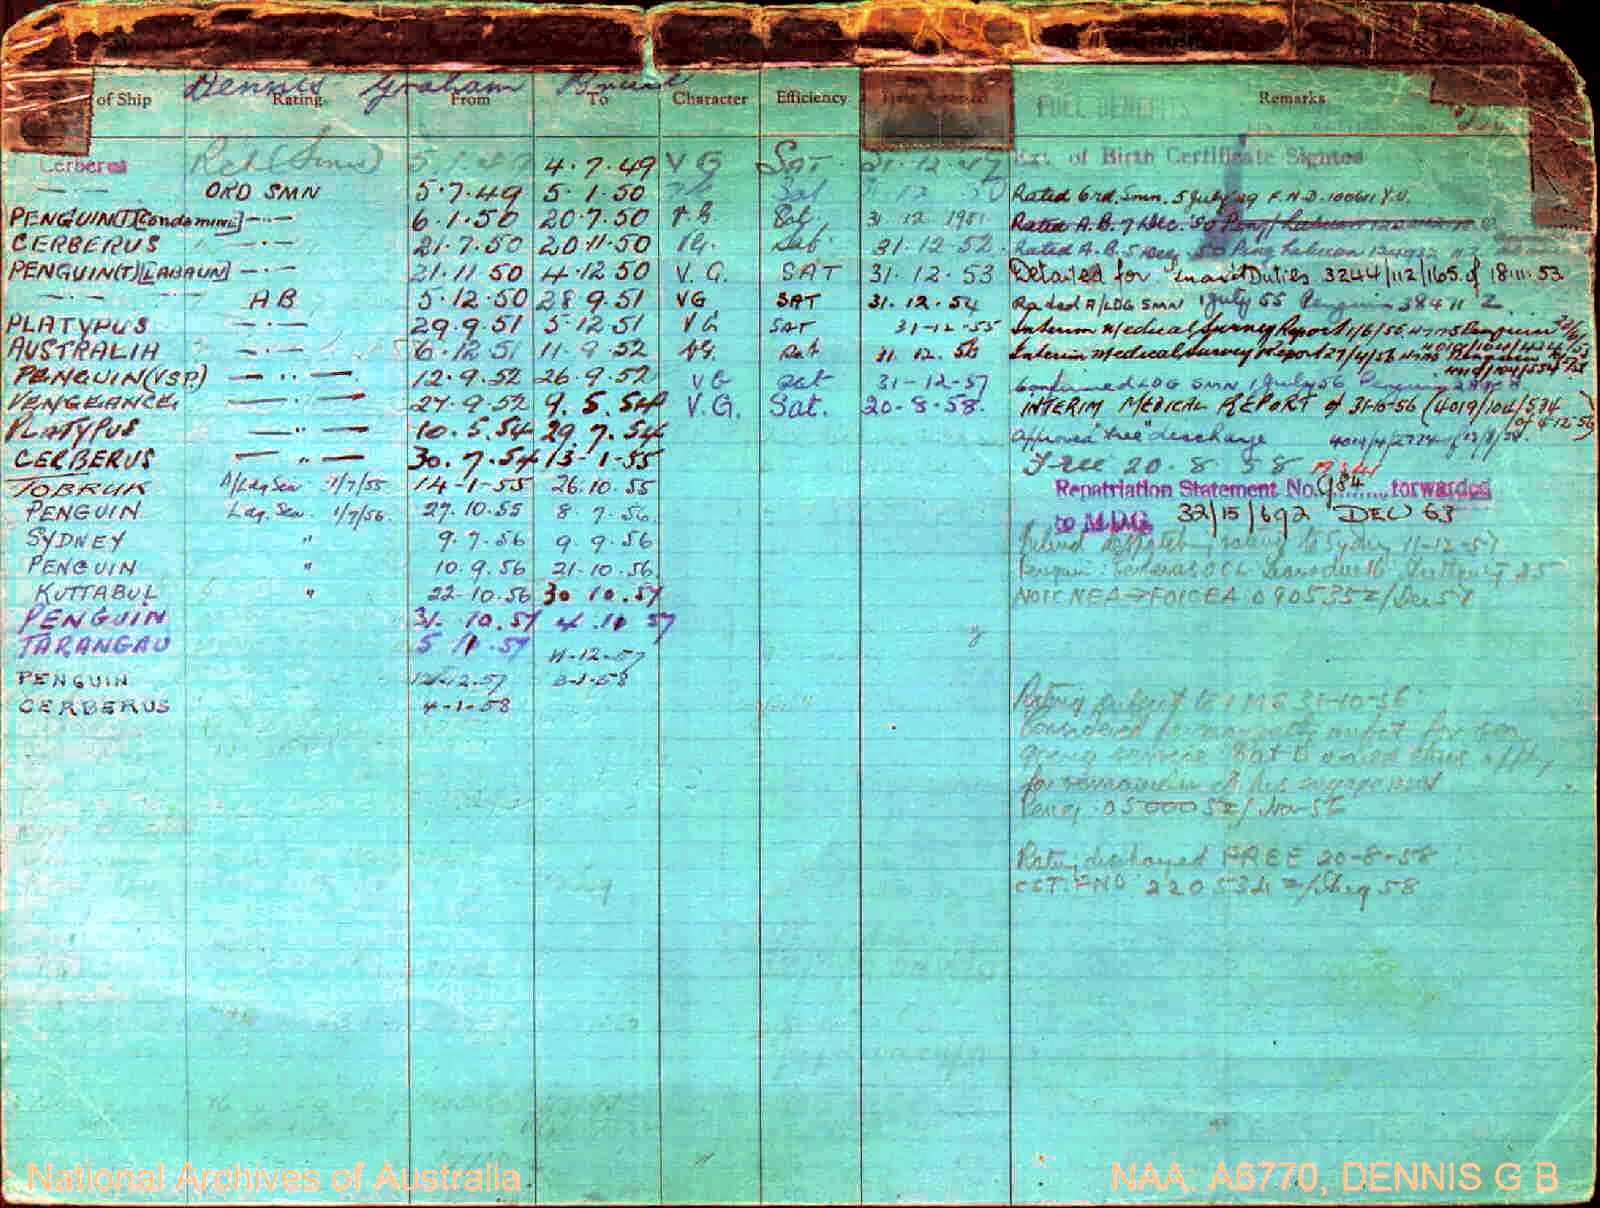 Dennis Graham
of Ship Rating From To Character Efficiency Remarks
FULL BENEFITS
Cerberus Rct (Smn) 5.1.49 4.7.49 VG Sat 31.12.49 Ext. of Birth Certificate Sighted
— · — ORD SMN 5.7.49 5.1.50 VG Sat 31 12 50 Rated Ord. Smn. 5 July 49 F.N.D.
PENGUIN(T)[Condamine] — · — 6.1.50 20.7.50 VG Sat. 31 12 1951 Rated A.B. 7 Dec. '50
CERBERUS — · — 21.7.50 20.11.50 VG. Sat. 31.12.52. Rated A.B. 5 Dec 50
PENGUIN(T)[LABAUN] — · — 21.11.50 4.12.50 V.G. SAT 31.12.53 Detailed for Duties 3244/112/165 of 18.11.53
— · — AB 5.12.50 28.9.51 VG SAT 31.12.54 Rated A/LDG SMN 1 July 55 Penguin
PLATYPUS — · — 29.9.51 5.12.51 VG SAT 31-12-55 Interim Medical Survey Report 1/6/56 HMAS Penguin
AUSTRALIA — · — 6.12.51 11.9.52 VG. Sat 31.12.56 Interim Medical Survey Report 27/4/56 HMAS Penguin
PENGUIN(VSP) — · · — 12.9.52 26.9.52 VG Sat 31-12-57 Confirmed LDG SMN 1 July 56 Penguin
VENGEANCE — · · — 27.9.52 9.5.54 V.G. Sat. 20-8-58. INTERIM MEDICAL REPORT of 31-10-56 (4019/104/534
of 4-12-56)
PLATYPUS — · · — 10.5.54 29.7.54 Approved "free" discharge
CERBERUS — · · — 30.7.54 13-1-55 Free 20.8.58
TOBRUK A/Ldg Sea 1/7/55 14-1-55 26.10.55 Repatriation Statement No. 984 forwarded
PENGUIN Ldg. Sea. 1/7/56. 27.10.55 8.7.56 to M.D.G. 32/15/692 DEC 63
SYDNEY " 9.7.56 9.9.56
PENGUIN " 10.9.56 21-10-56
KUTTABUL " 22-10.56 30 10.57 NOICNEA → FOICEA 090535Z/Dec 57
PENGUIN 31.10.57 4.11 57
TARANGAU 5 11.57 11-12-57
PENGUIN 12-12.57 3-1-58
CERBERUS 4-1-58
Rating subject to 31-10-56
Considered permanently unfit for sea
going service
for remainder of his engagement
Rating discharged FREE 20-8-58
National Archives of Australia NAA: A6770, DENNIS G B